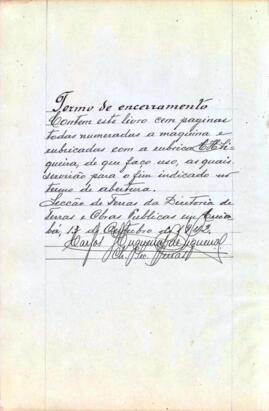 Termo de encerramento
Contem este livro cem paginas
todas numeradas a maquina e
rubricadas com a rubrica CHSi-
queira, de que faço uso, as quais
servirão para o fim indicado no
termo de abertura.
Secção de Terras da Diretoria de
Terras e Obras Publicas em Cuia-
bá, 17 de Outubro de 1942.
Carlos Hugueney de Siqueira